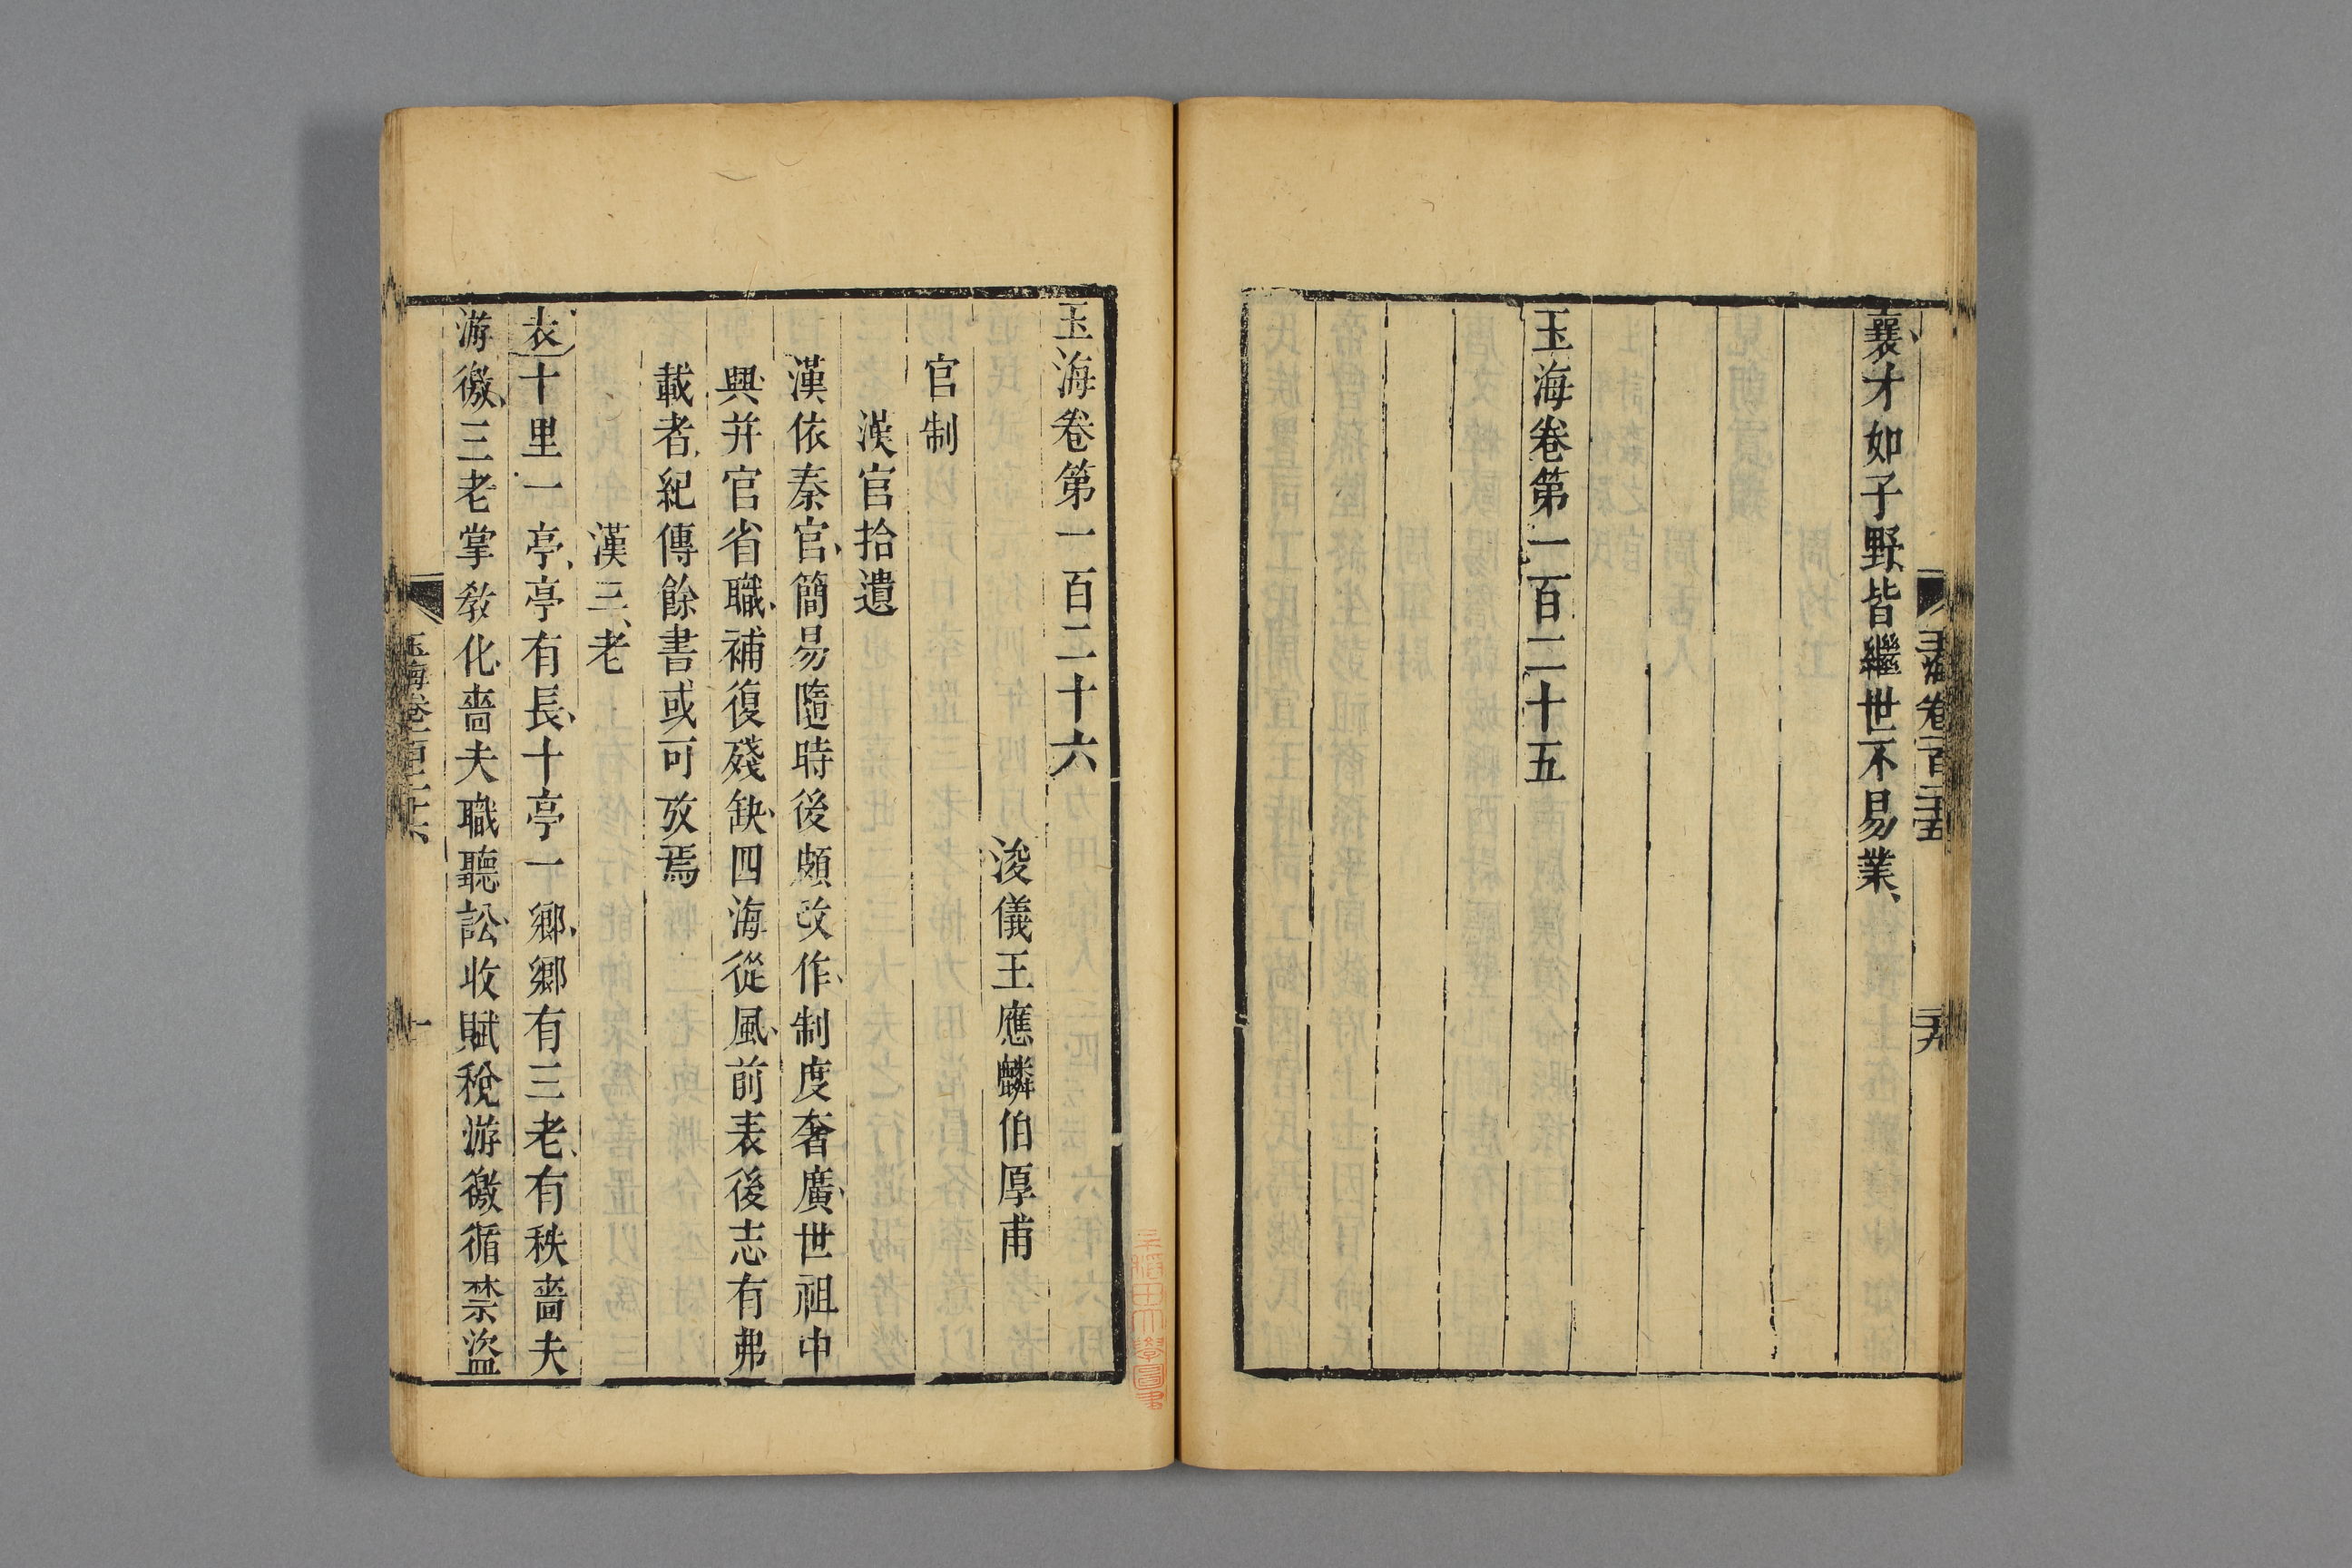 襄才如子野皆繼世不易業
玉海卷第一百二十五
玉海卷第一百二十六
浚儀王應麟伯厚甫
官制
漢官拾遺
漢依秦官簡易隨時後頗改作制度奢廣世祖中
興并官省職補復殘缺四海從風前表後志有弗
載者紀傳餘書或可攷焉
漢三老
表十里一亭亭有長十亭一鄉鄉有三老有秩嗇夫
游徼三老掌敎化嗇夫職聽訟收賦稅游徼循禁盜